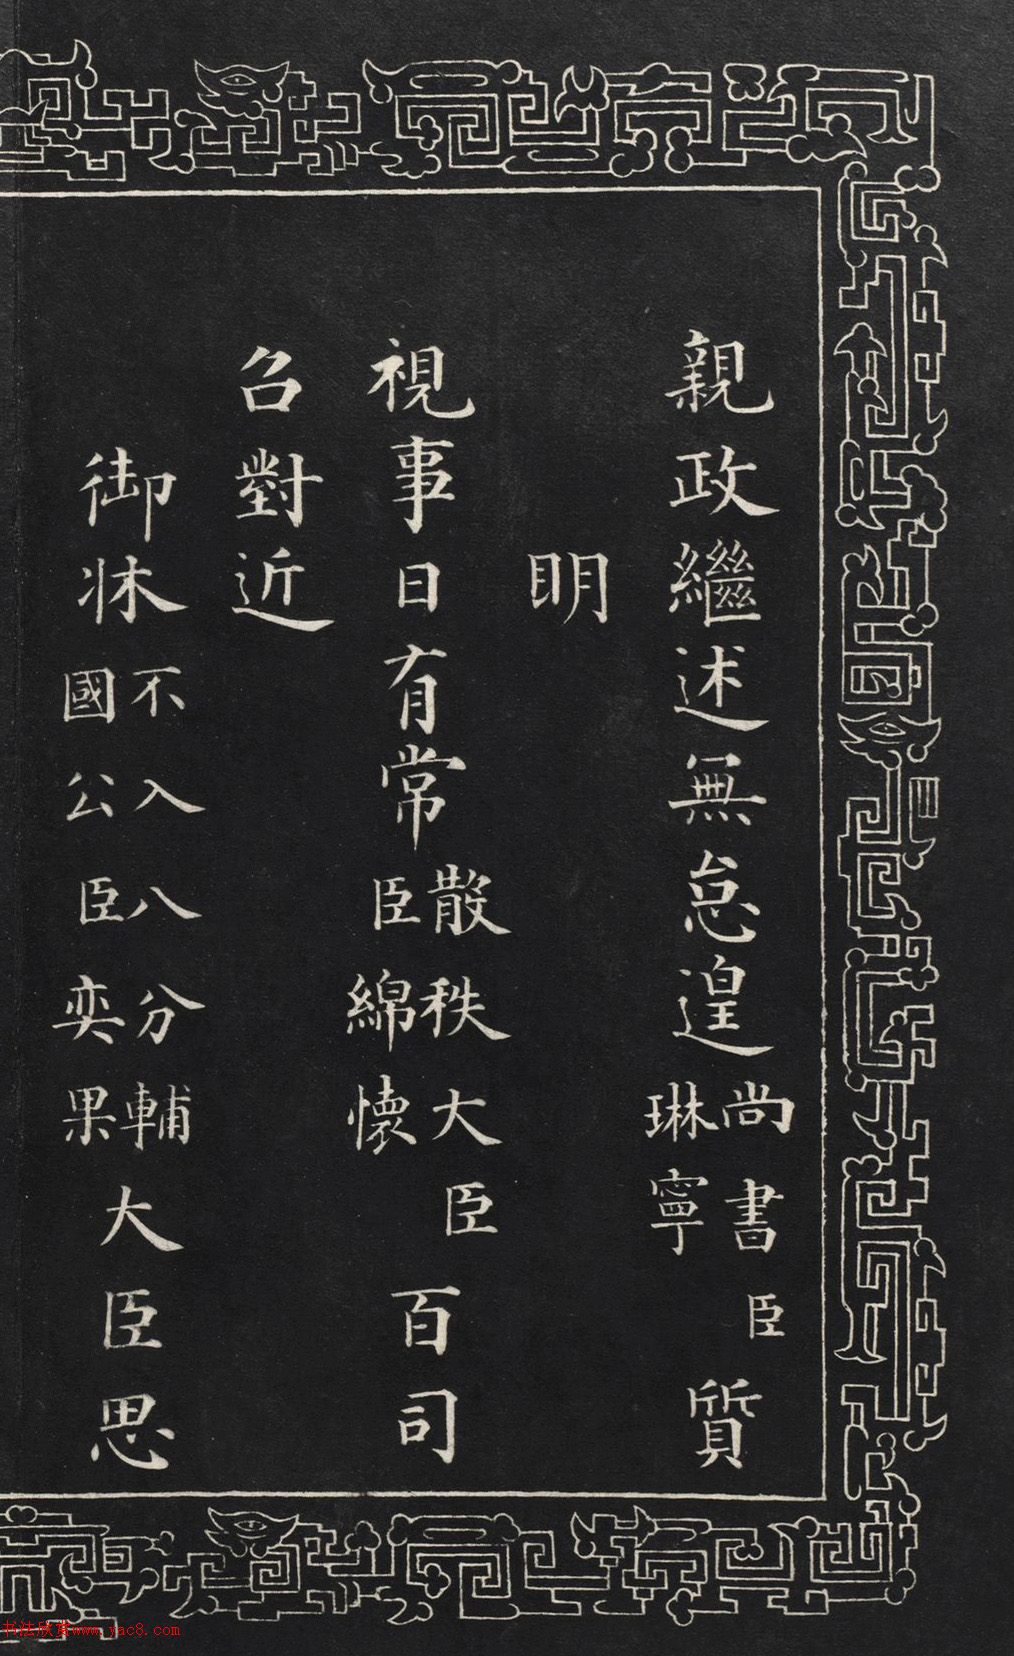 親政繼述無怠遑尚書臣琳寧質
明
視事日有常散秩大臣臣綿懷百司
召對近
御牀不入八分輔國公臣奕果大臣思
书法欣赏www.yac8.com